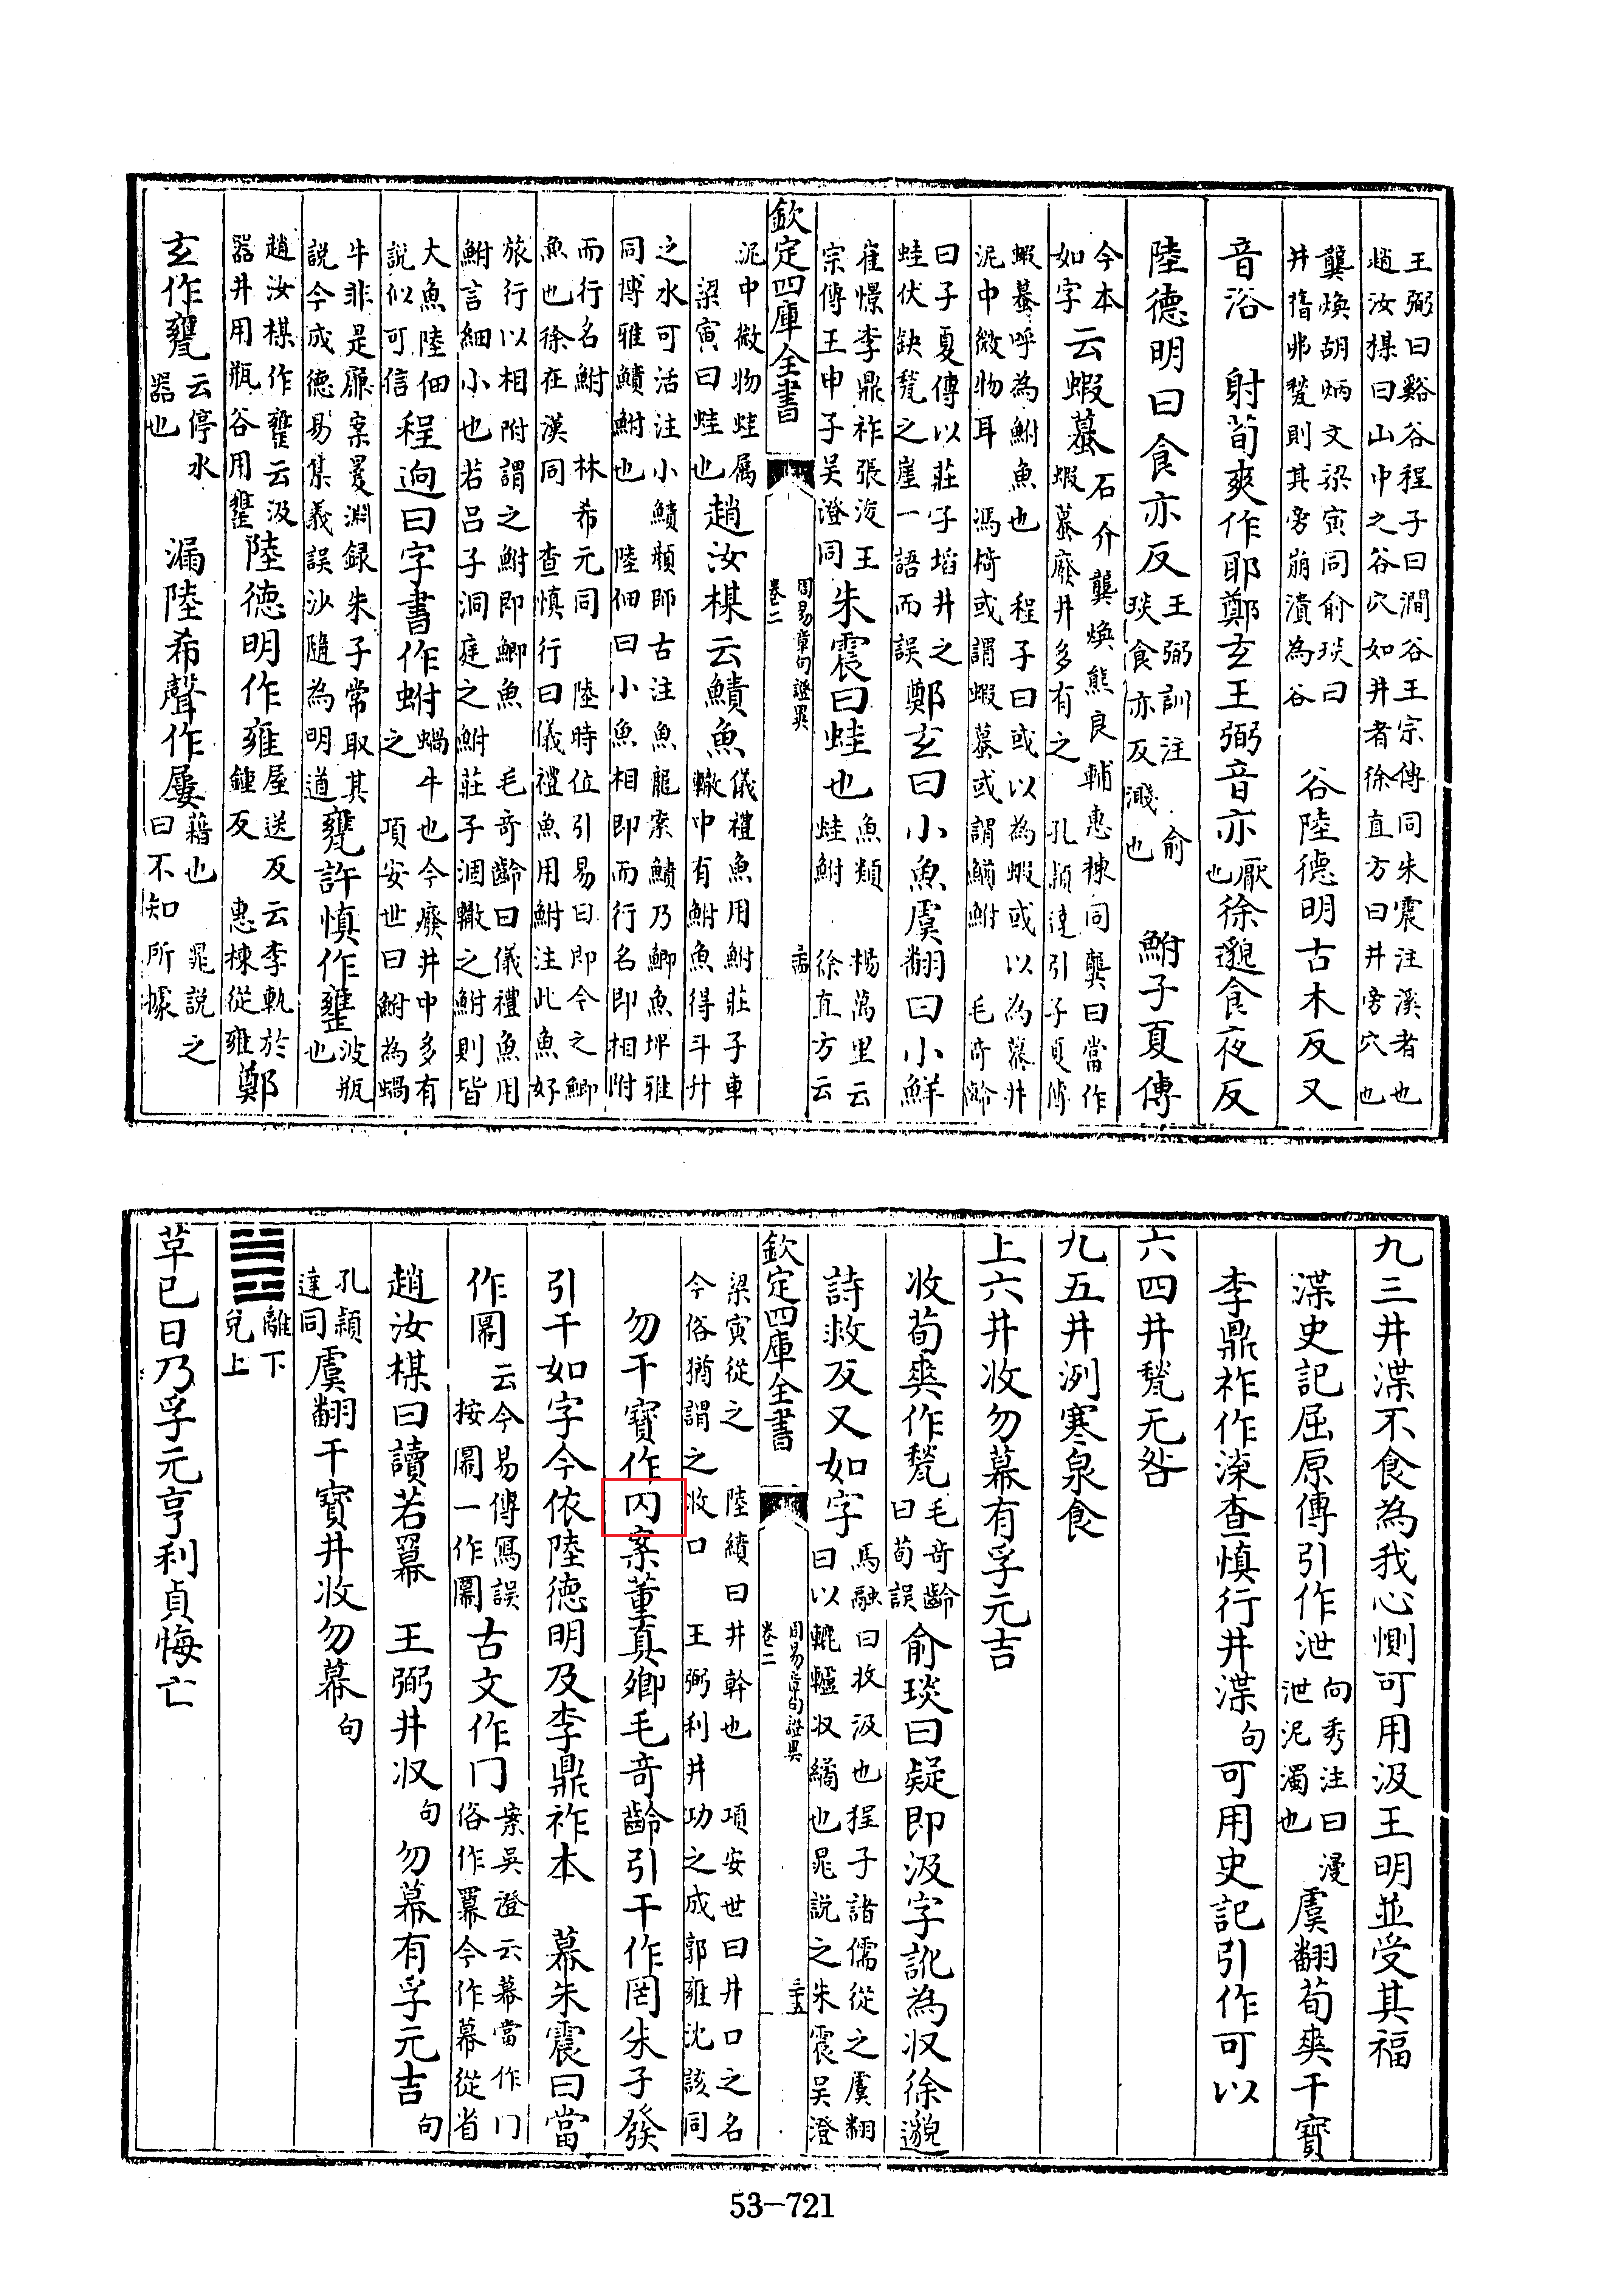 王弼曰谿谷程子曰澗谷王宗傳同朱震注溪者也
趙汝楳曰山中之谷穴如井者徐直方曰井旁穴也
龔煥胡炳文梁寅同俞琰曰井脩非甃則其旁崩潰為谷 谷陸德明古木反又
音浴 射荀爽作耶鄭玄王弼音亦厭也徐邈食夜反
陸德明曰食亦反王弼訓注 俞琰食亦反濺也 鮒子夏傳
今本如字云蝦蟇石介龔煥熊良輔惠棟同龔曰當作蝦蟇廢井多有之 孔穎達引子夏傳
蝦蟇呼為鮒魚也 程子曰或以為蝦或以為蟇井
泥中微物耳 馮椅或謂蝦蟇或謂鰌鮒 毛奇齡
曰子夏傳以莊子埳井之蛙伏缺甃之崖一語而誤鄭玄曰小魚虞翻曰小鮮
崔憬李鼎祚張浚王宗傳王申子吳澄同朱震曰蛙也魚類 楊萬里云蛙鮒 徐直方云
欽定四庫全書 周易章句證異 卷二
泥中微物蛙屬梁寅曰蛙也趙汝楳云鰿魚儀禮魚用鮒莊子車轍中有鮒魚得斗升
之水可活注小鰿顏師古注魚龍案鰿乃鯽魚埤雅
同博雅鰿鮒也 陸佃曰小魚相即而行名即相附
而行名鮒 林希元同 陸時位引易曰即今之鯽
魚也徐在漢同 查慎行曰儀禮魚用鮒注此魚好
旅行以相附謂之鮒即鯽魚 毛奇齡曰儀禮魚用
鮒言細小也若呂子洞庭之鮒莊子涸轍之鮒則皆
大魚陸佃說似可信程迥曰字書作蚹蝸牛也今廢井中多有之 項安世曰鮒為蝸
牛非是廉案晏淵録朱子常取其說今成德易集義誤沙隨為明道甕許慎作罋汲瓶也
趙汝楳作罋云汲器井用瓶谷用罋陸德明作雍屋送反 云李軌於鍾反 惠棟從雍鄭
玄作甕云停水器也 漏陸希聲作屢藉也 晁說之曰不知所據
九三井渫不食為我心惻可用汲王明並受其福
渫史記屈原傳引作泄向秀注曰泄泥濁也 漫虞翻荀爽干寶
李鼎祚作渫查慎行井渫句可用史記引作可以
六四井甃无咎
九五井洌寒泉食
上六井收勿幕有孚元吉
收荀爽作甃毛奇齡曰荀誤俞琰曰疑即汲字訛為収徐邈
詩救反又如字馬融曰收汲也程子諸儒從之虞翻曰以轆轤収繘也晁説之朱震吳澄
欽定四庫全書 周易章句證異 卷二
梁寅從之 陸績曰井幹也 項安世曰井口之名
今俗猶謂之收口 王弼利井功之成郭雍沈該同
勿干寶作 案董真卿毛奇齡引干作罔朱子發
引干如字今依陸德明及李鼎祚本 幕朱震曰當
作羃云今易傳寫誤按羃一作羃古文作冂案吳澄云幕當作冂俗作羃今作幕從省
趙汝楳曰讀若羃 王弼井収句勿幕有孚元吉句
孔穎達同虞翻干寶井收勿幕句
離下兌上
革已日乃孚元亨利貞悔亡
53-721